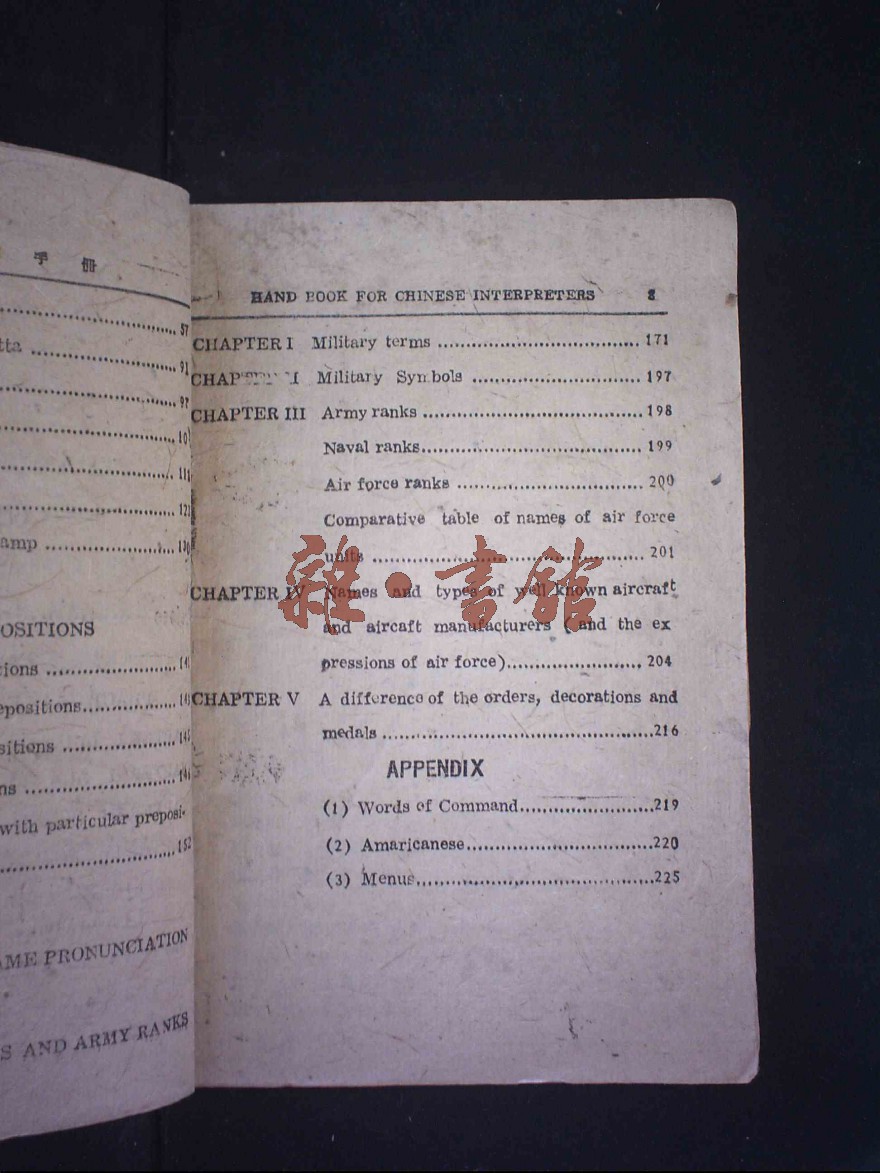 手 冊
57
tta 91
97
111
121
amp 130
OSITIONS
tions
epositions
sitions
ns
with particular preposi-
152
AME PRONUNCIATION
S AND ARMY RANKS
HAND BOOK FOR CHINESE INTERPRETERS
CHAPTER I Military terms 171
Military Symbols 197
CHAPTER III Army ranks 198
Naval ranks 199
Air force ranks 200
Comparative table of names of air force
units 201
CHAPTER IV Names and types of well known aircraft
and aircaft manufacturers (and the ex
pressions of air force) 204
CHAPTER V A difference of the orders, decorations and
medals 216
APPENDIX
(1) Words of Command 219
(2) Amaricanese 220
(3) Menus 225
雜·書館